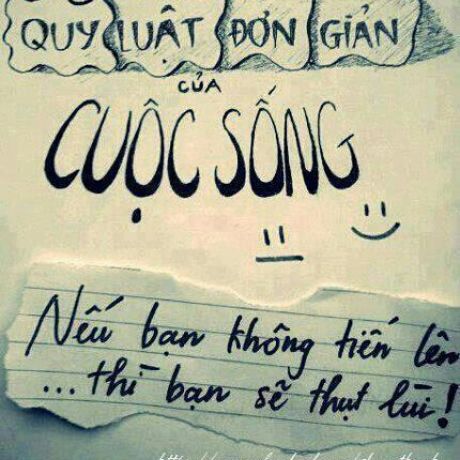 QUY LUẬT ĐƠN GIẢN
CỦA
CUỘC SỐNG
Nếu bạn không tiến lên
... thì bạn sẽ thụt lùi!